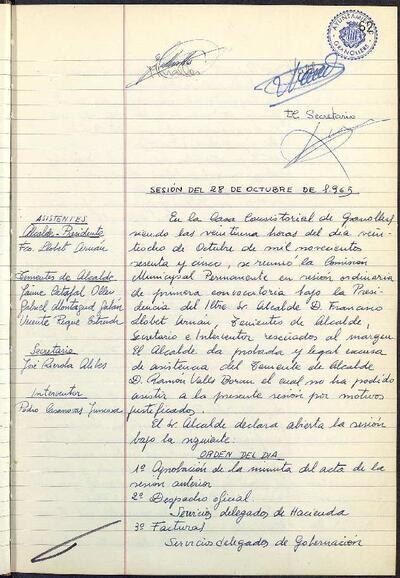 AYUNTAMIENTO
GRANOLLERS
El Secretario
SESIÓN DEL 28 DE OCTUBRE DE 1.965
ASISTENTES
Alcalde-Presidente
Fco. Llobet Arnán
Tenientes de Alcalde
Jaime
Gabriel Montagud
Vicente
Secretario
José
Interventor
Pedro Casanovas
En la Casa Consistorial de Granollers
siendo las veintiuna horas del día vein-
tiocho de Octubre de mil novecientos
sesenta y cinco, se reunió la Comisión
Municipal Permanente en sesión ordinaria
de primera convocatoria bajo la Presi-
dencia del Iltre. Sr. Alcalde D. Francisco
Llobet Arnán, Tenientes de Alcalde,
Secretario e Interventor reseñados al margen.
El Alcalde da probada y legal excusa
de asistencia del Teniente de Alcalde
D. Ramón Valls el cual no ha podido
asistir a la presente sesión por motivos
justificados.
El Sr. Alcalde declara abierta la sesión
bajo la siguiente:
ORDEN DEL DIA
1º Aprobación de la minuta del acta de la
sesión anterior
2º Despacho oficial.
Servicios delegados de Hacienda
3º Facturas
Servicios delegados de Gobernación